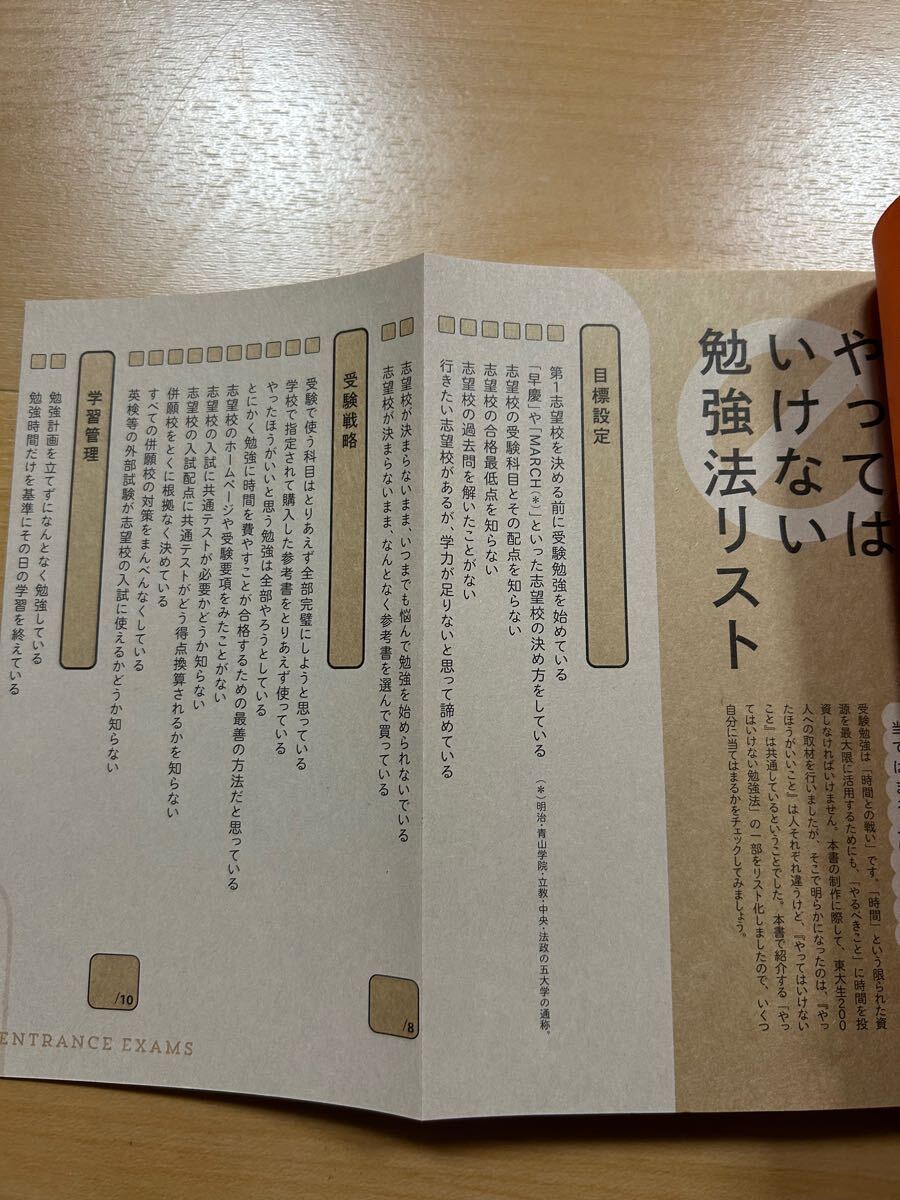 やっては
いけない
勉強法リスト
受験勉強は「時間との戦い」です。「時間」という限られた資
源を最大限に活用するためにも、「やるべきこと」に時間を投
資しなければいけません。本書の制作に際して、東大生200
人への取材を行いましたが、そこで明らかになったのは、『やっ
たほうがいいこと』は人それぞれ違うけど、『やってはいけない
こと』は共通しているということでした。本書で紹介する「やっ
てはいけない勉強法」の一部をリスト化しましたので、いくつ
自分に当てはまるかをチェックしてみましょう。
目標設定
第1志望校を決める前に受験勉強を始めている
「早慶」や「MARCH(*)」といった志望校の決め方をしている
(*)明治・青山学院・立教・中央・法政の五大学の通称。
志望校の受験科目とその配点を知らない
志望校の合格最低点を知らない
志望校の過去問を解いたことがない
行きたい志望校があるが、学力が足りないと思って諦めている
志望校が決まらないまま、いつまでも悩んで勉強を始められないでいる
志望校が決まらないまま、なんとなく参考書を選んで買っている
/8
受験戦略
受験で使う科目はとりあえず全部完璧にしようと思っている
学校で指定されて購入した参考書をとりあえず使っている
やったほうがいいと思う勉強は全部やろうとしている
とにかく勉強に時間を費やすことが合格するための最善の方法だと思っている
志望校のホームページや受験要項をみたことがない
志望校の入試に共通テストが必要かどうか知らない
志望校の入試配点に共通テストがどう得点換算されるかを知らない
併願校をとくに根拠なく決めている
すべての併願校の対策をまんべんなくしている
英検等の外部試験が志望校の入試に使えるかどうか知らない
/10
学習管理
勉強計画を立てずになんとなく勉強している
勉強時間だけを基準にその日の学習を終えている
ENTRANCE EXAMS